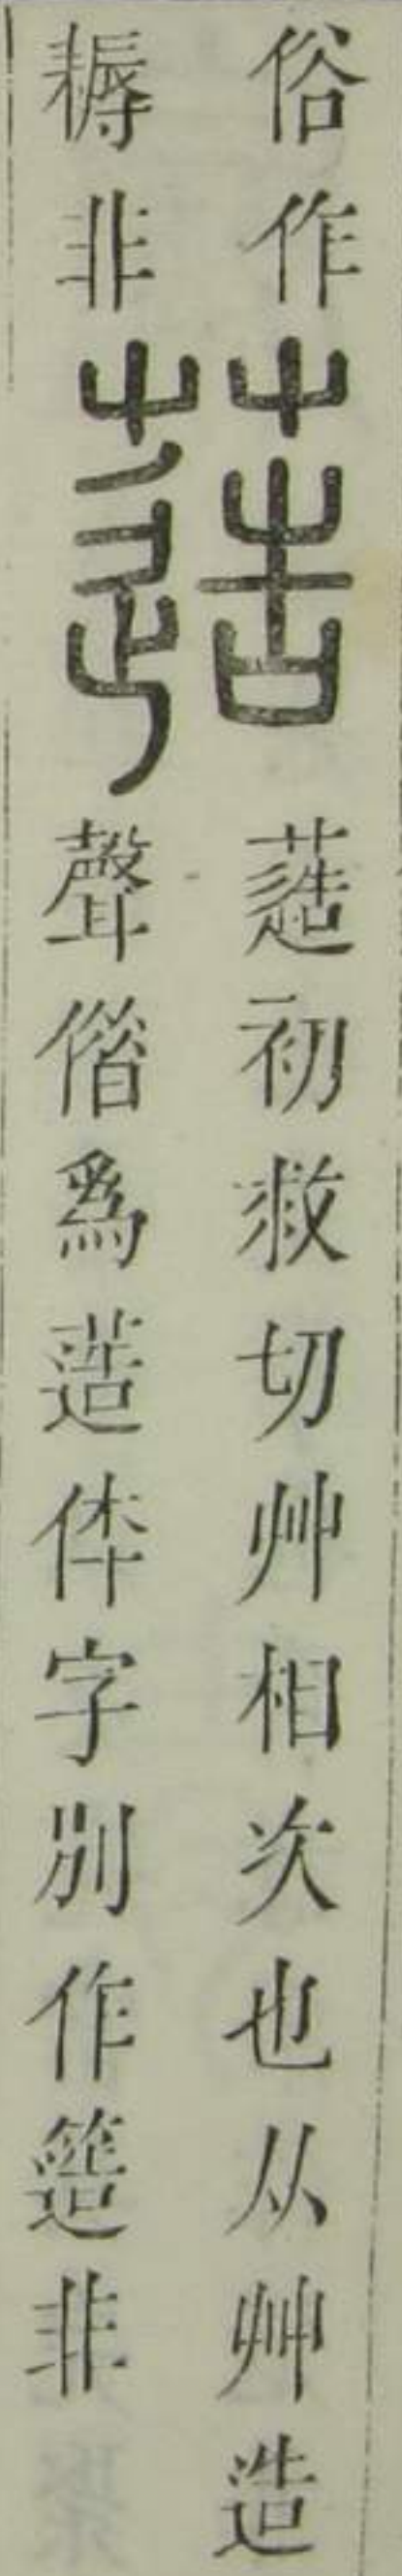 俗作
耨非
䔏
䔏初救切艸相次也从艸造
聲借爲䔏倅字別作簉非